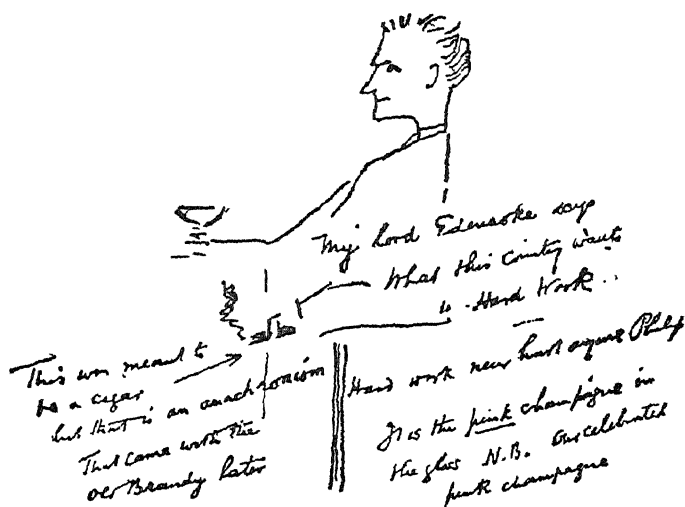 My Lord Edensoke says
What this Country wants
is Hard Work..
This was meant to
be a cigar
but that is an anachronism
That came with the
old Brandy later
Hard work never hurt anyone Philip
It is the pink champagne in
the glass N.B. Our celebrated
pink champagne